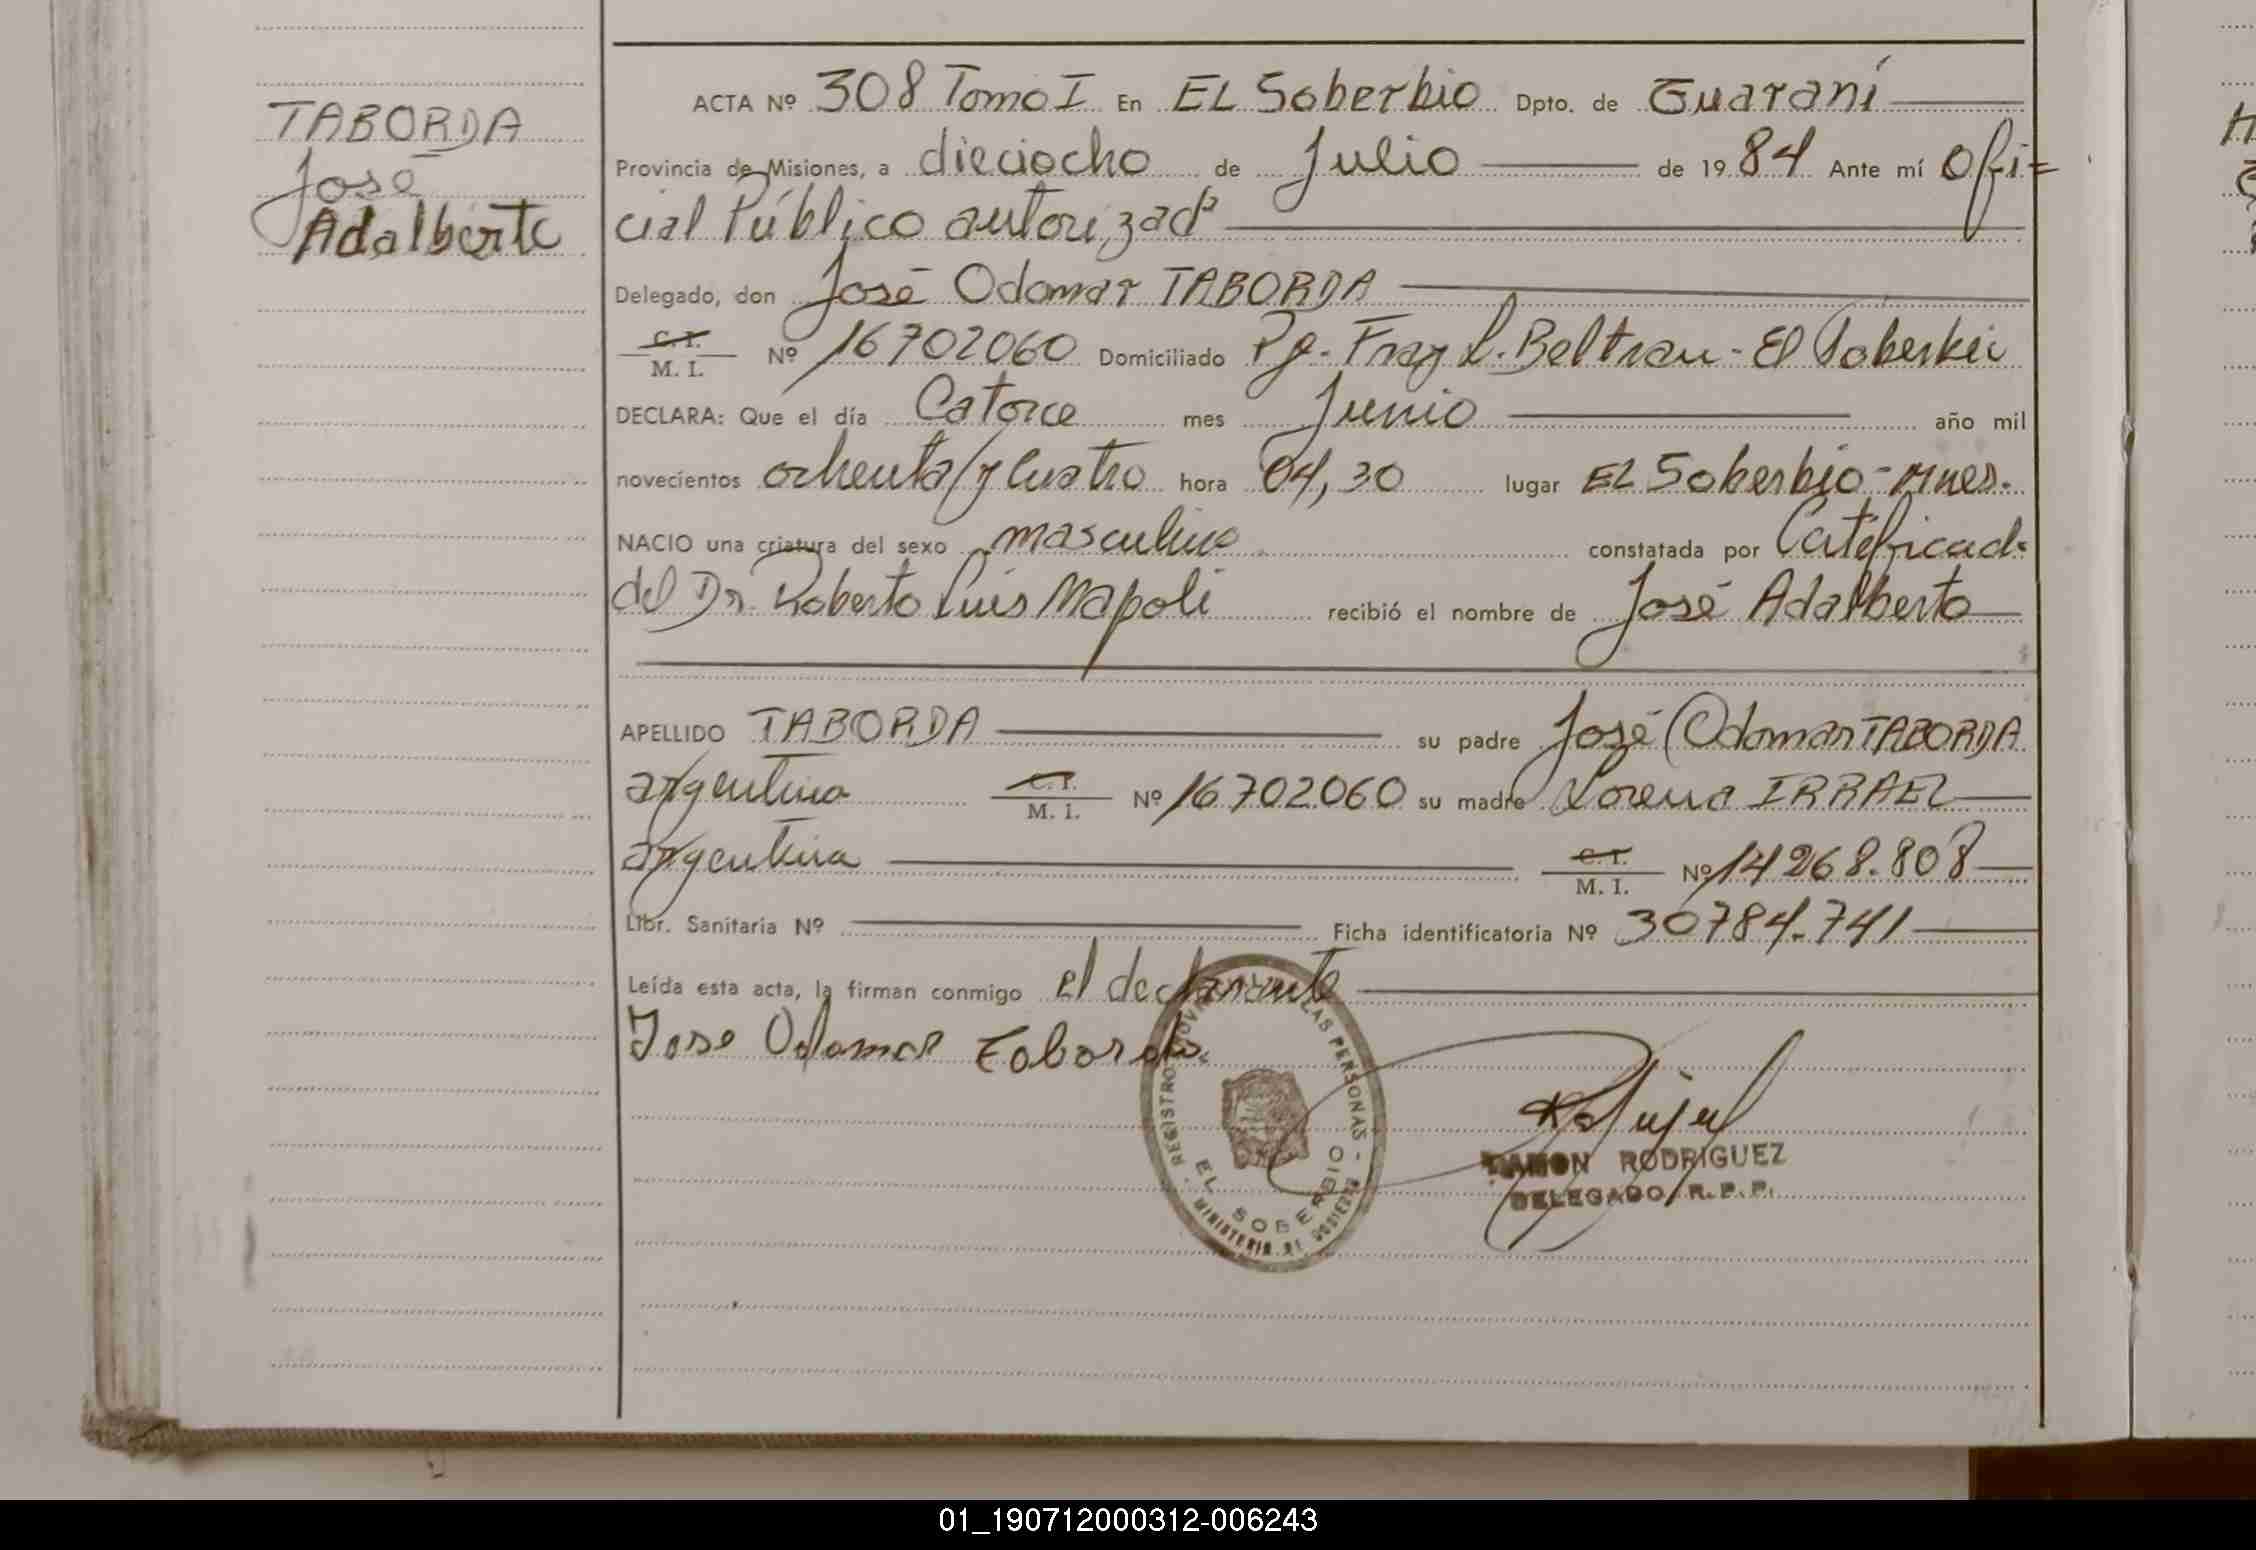 TABORDA
José
Adalberto
ACTA Nº 308 Tomo I En EL Soberbio Dpto. de Guaraní
Provincia de Misiones, a dieciocho de Julio de 1984 Ante mí Ofi=
cial Público autorizado
Delegado, don José Odomar TABORDA
C. I.
M. I. Nº 16702060 Domiciliado Pg. Fray L. Beltran - El Soberbio
DECLARA: Que el día Catorce mes Junio año mil
novecientos ochenta y cuatro hora 04,30 lugar EL Soberbio - Mnes.
NACIO una criatura del sexo masculino constatada por
del Dr. Roberto Luis Napoli recibió el nombre de José Adalberto
APELLIDO TABORDA su padre José Odomar TABORDA
argentino C. I. M. I. Nº 16702060 su madre Lorena IRRAEL
argentina C. I. M. I. Nº 14268.808
Libr. Sanitaria Nº Ficha identificatoria Nº 30784.741
Leída esta acta, la firman conmigo el declarante
Jose Odomar Taborda
REGISTRO LAS PERSONAS -
EL SOBERBIO
MINISTERIO DE GOBIERNO
RAMON RODRIGUEZ
DELEGADO R.P.P.
01_190712000312-006243